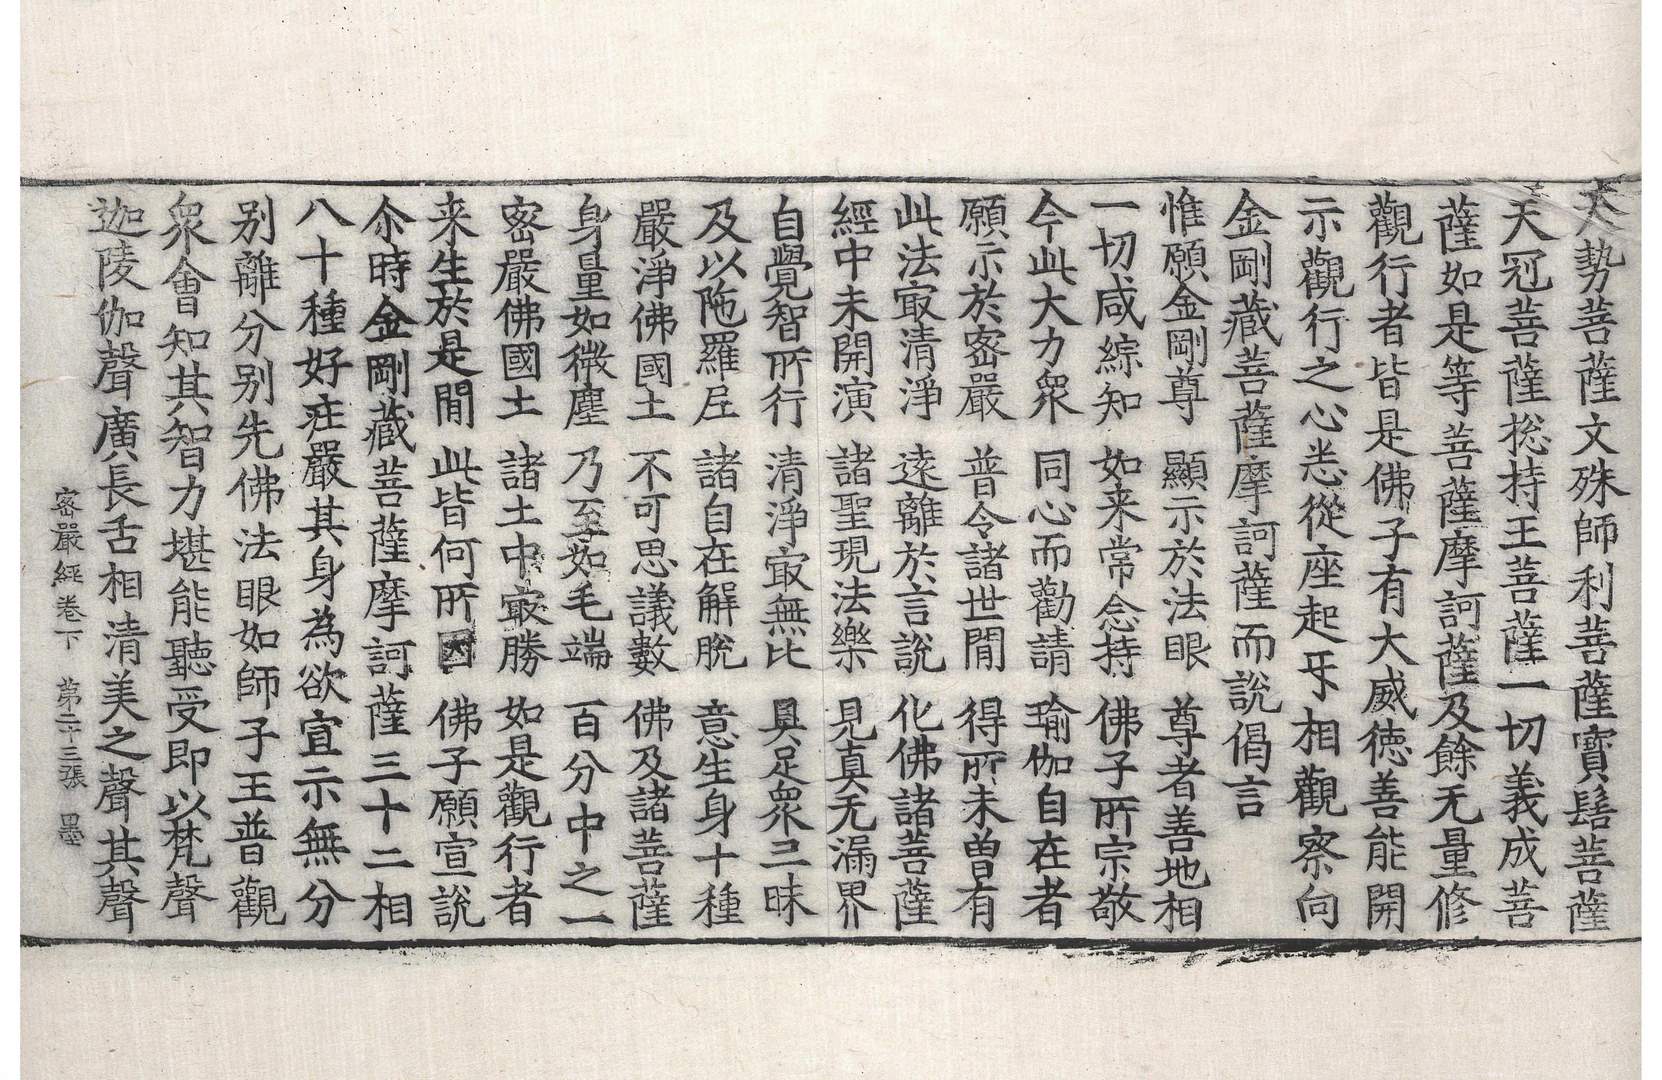 大勢菩薩文殊師利菩薩寶髻菩薩
天冠菩薩揔持王菩薩一切義成菩
薩如是等菩薩摩訶薩及餘无量修
觀行者皆是佛子有大威德善能開
示觀行之心悉從座起㸦相觀察向
金剛藏菩薩摩訶薩而說偈言
惟願金剛尊 顯示於法眼 尊者善地相
一切咸綜知 如来常念持 佛子所宗敬
今此大力衆 同心而勸請 瑜伽自在者
願示於密嚴 普令諸世間 得所未曾有
此法㝡清淨 遠離於言說 化佛諸菩薩
經中未開演 諸聖現法樂 見真无漏界
自覺智所行 清淨㝡無比 具足衆三昧
及以陁羅尼 諸自在解脫 意生身十種
嚴淨佛國土 不可思議數 佛及諸菩薩
身量如微塵 乃至如毛端 百分中之一
密嚴佛國土 諸土中㝡勝 如是觀行者
来生於是間 此皆何所因 佛子願宣說
尒時金剛藏菩薩摩訶薩三十二相
八十種好莊嚴其身為欲宣示無分
別離分別先佛法眼如師子王普觀
衆會知其智力堪能聽受即以梵聲
迦陵伽聲廣長舌相清美之聲其聲
密嚴經卷下 第二十三張 墨